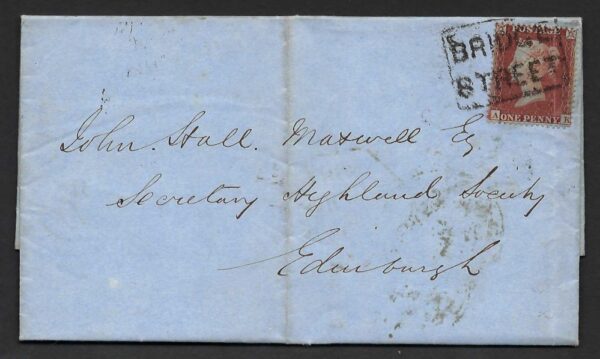 BRIDGE
STREET
POSTAGE
A ONE PENNY
John Hall Maxwell Eq
Secretary Highland Society
Edinburgh